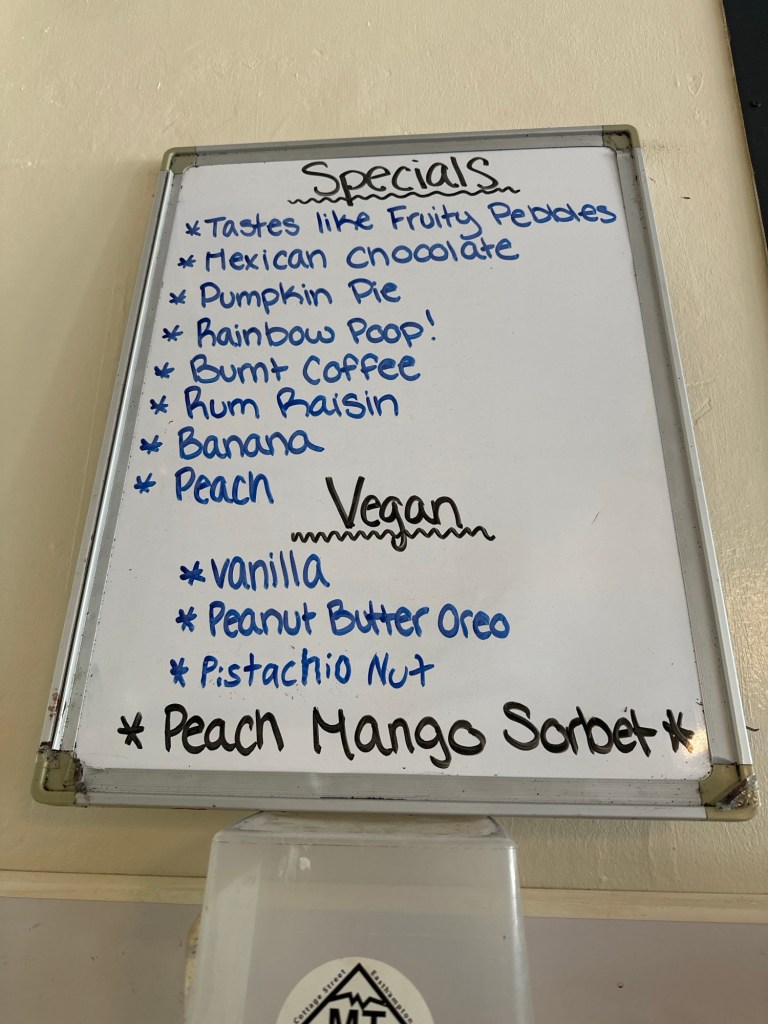 Specials
* Tastes like Fruity Pebbles
* Mexican Chocolate
* Pumpkin Pie
* Rainbow Poop!
* Burnt Coffee
* Rum Raisin
* Banana
* Peach
Vegan
* vanilla
* Peanut Butter Oreo
* Pistachio Nut
* Peach Mango Sorbet *
Cottage Street Easthampton
MT